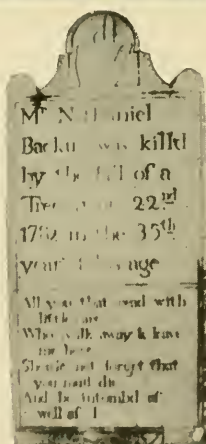 Mr Nathaniel
Backus was killd
by the fall of a
Tree 22nd
in the 35th
year age
All you that read with
little care
Who walk away & leave
me here
Should not forget that
you must die
And be intombd as
well as I